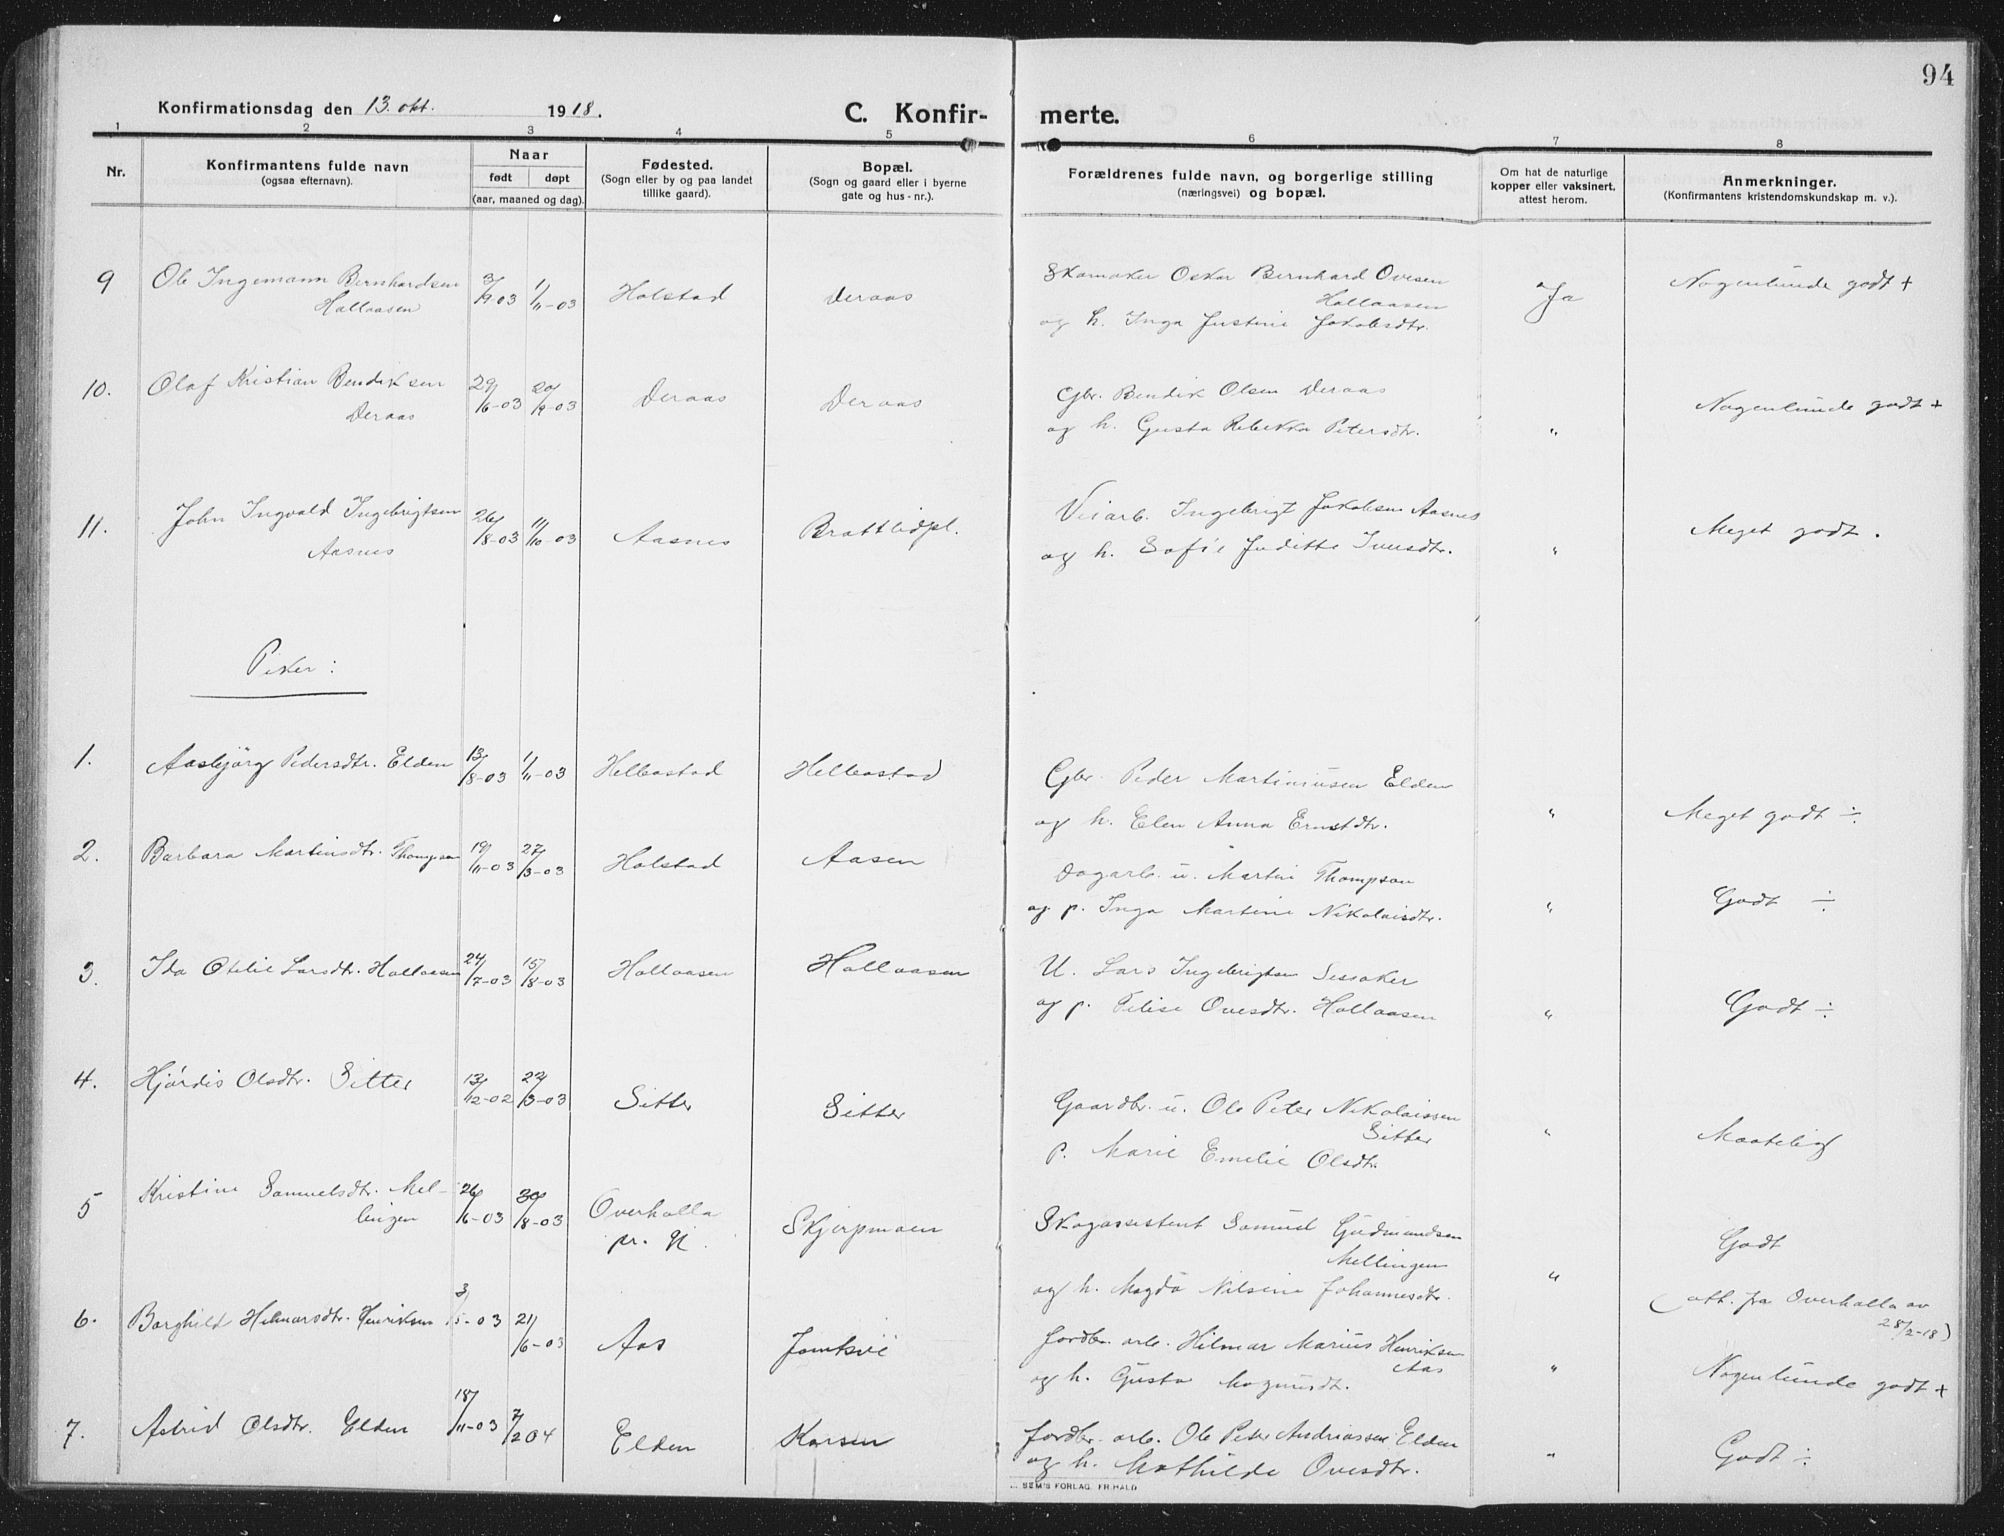 94
Konfirmationsdag den 13. okt. 1918.
C. Konfir-
merte.
1 2 3 4 5 6 7 8
Nr.
Konfirmantens fulde navn
(ogsaa efternavn).
Naar
født døpt
(aar, maaned og dag).
Fødested.
(Sogn eller by og paa landet
tillike gaard).
Bopæl.
(Sogn og gaard eller i byerne
gate og hus-nr.).
Forældrenes fulde navn, og borgerlige stilling
(næringsvei) og bopæl.
Om hat de naturlige
kopper eller vaksinert,
attest herom.
Anmerkninger.
(Konfirmantens kristendomskundskap m. v.).
9 Ole Ingemann Bernhardsen
Hallaasen
3/9 03 1/11-03 Holstad Deraas
Skomaker Oskar Bernhard Ovesen
Hallaasen
og h. Inga Justine Jakobsdtr.
Ja
Nogenlunde godt +
10. Olaf Kristian Bendiksen
Deraas
29/6-03 20/9-03 Deraas Deraas
Gbr. Bendik Olsen Deraas
og h. Gusta Rebekka Petersdtr.
"
Nogenlunde godt +
11. John Ingvald Ingebrigtsen
Aasnes
26/8-03 11/10-03 Aasnes Brattlidpl.
Veiarb. Ingebrigt Jakobsen Aasnes
og h. Sofie Juditte Iversdtr.
"
Meget godt.
Piker:
1. Aasbjörg Pedersdtr. Elden 13/8-03 1/11-03 Helbostad Helbostad
Gbr. Peder Martiniusen Elden
og h. Elen Anna Ernstdtr.
"
Meget godt ÷
2. Barbara Martinsdtr. Thompson 19/11-03 27/3-03 Holstad Aasen
Dagarb. u. Martin Thompson
og p. Inga Martine Nikolaisdtr.
"
Godt ÷
3. Ida Otelie Larsdtr. Hallaasen 24/7-03 15/8-03 Hallaasen Hallaasen
U. Lars Ingebrigtsen Sessaker
og p. Ovesdtr. Hallaasen
"
Godt ÷
4. Hjørdis Olsdtr. Sitter 13/12-02 22/3-03 Sitter Sitter
Gaardbr. u. Ole Peter Nikolaissen
Sitter
p. Marie Emelie Olsdtr.
"
Maatelig
5 Kristine Samuelsdtr. Mel-
lingen
26/6-03 30/8-03 Overhalla
pr. gj.
Skjerpmoen
Skogassistent Samuel Gudmundsen
Mellingen
og h. Magda Nilsine Johannesdtr.
"
Godt
(att. fra Overhalla av
28/2-18)
6. Borghild Helmarsdtr. Henriksen 3/5-03 21/6-03 Aas Jomtsvé
Jordbr. arb. Hilmar Marius Henriksen
Aas
og h. Gusta Magnusdtr.
"
Nogenlunde godt +
7. Astrid Olsdtr. Elden 18/11-03 7/2 04 Elden Karsen
Jordbr. arb. Ole Peter Andreassen Elden
og h. Mathilde Ovesdtr.
"
Godt ÷
SEM'S FORLAG, FR.HALD